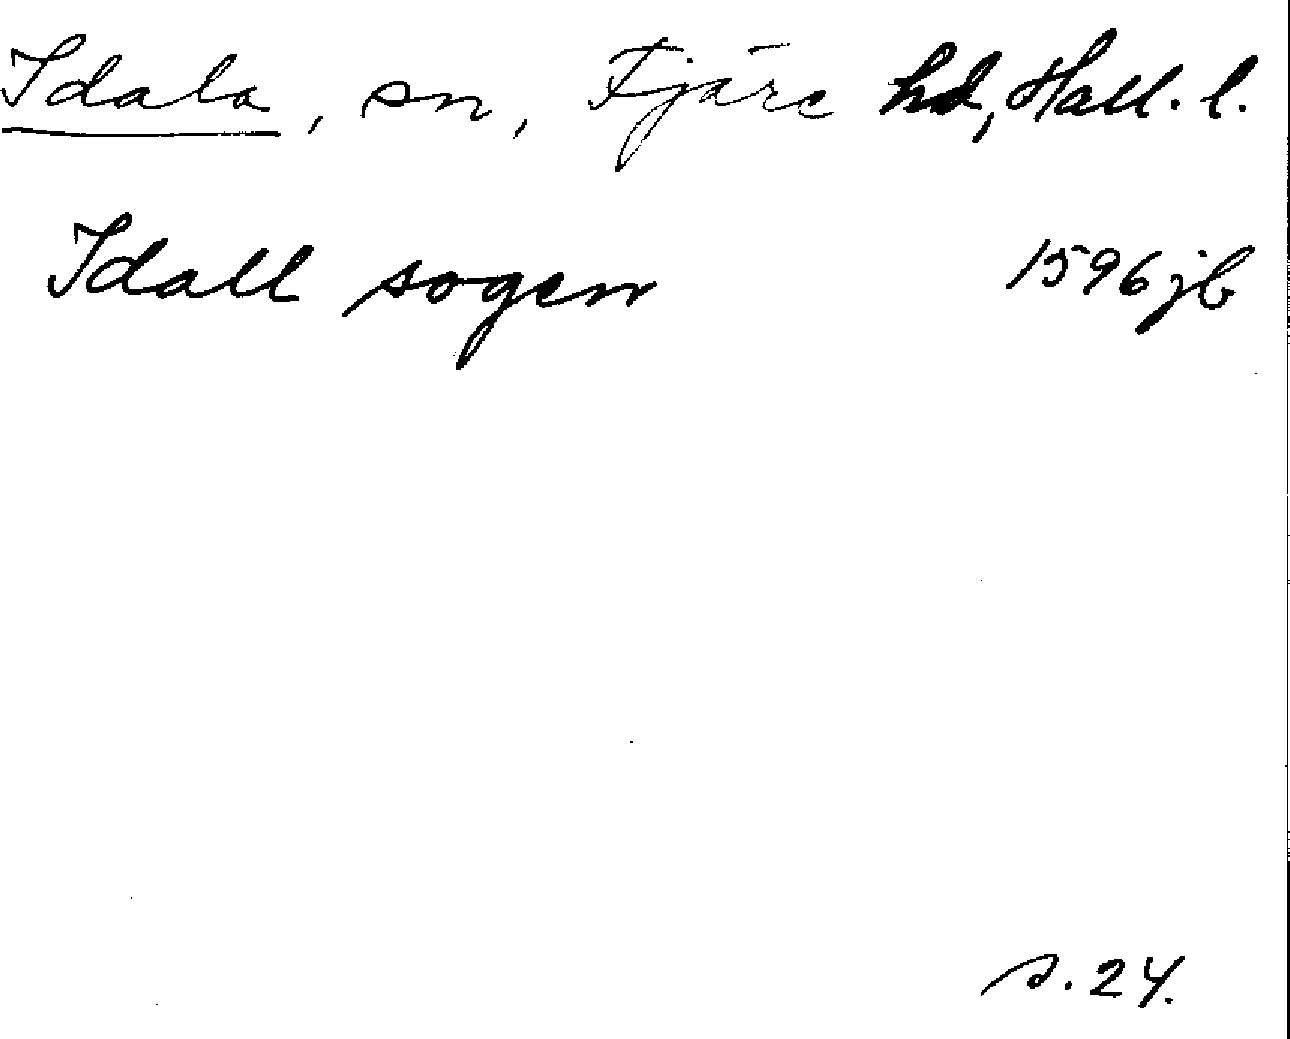 Idala, sn, Fjäre hd, Hall. l.
Idall sogen 1596 jb
s. 24.